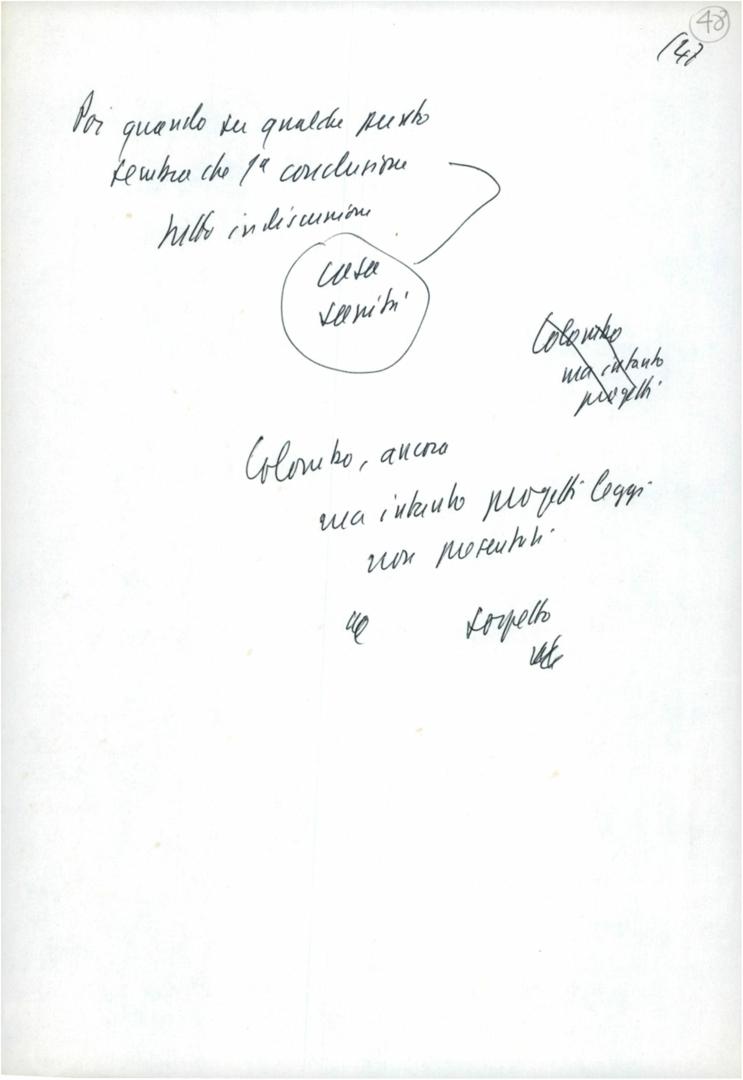 48
(47
Poi quando su qualche punto
sembra che 1ª conclusione
tutto in discussione
casa
sanità
Colombo
ma intanto
progetti
Colombo, ancora
ma intanto progetti leggi
non presentati
sospetto